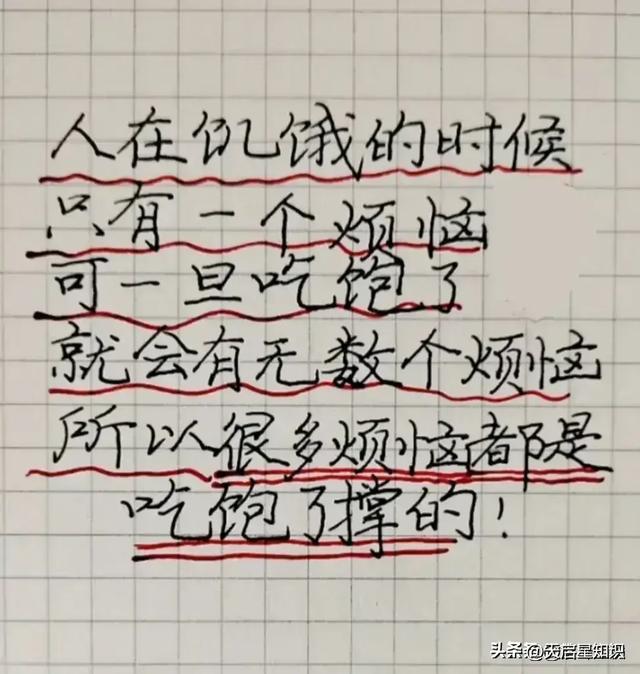 人在饥饿的时候
只有一个烦恼
可一旦吃饱了
就会有无数个烦恼
所以很多烦恼都是
吃饱了撑的!
头条 @天启星知识